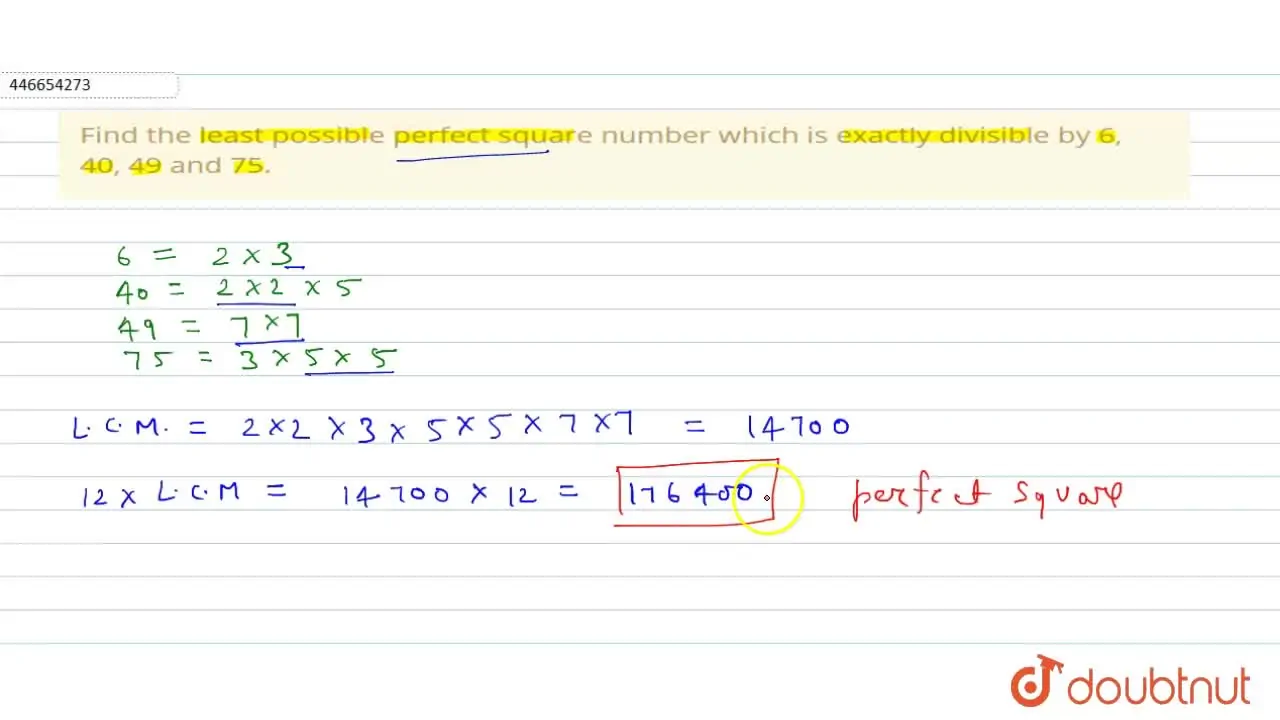 446654273
Find the least possible perfect square number which is exactly divisible by 6,
40, 49 and 75.
6 = 2 × 3
40 = 2 × 2 × 5
49 = 7 × 7
75 = 3 × 5 × 5
L.C.M. = 2 × 2 × 3 × 5 × 5 × 7 × 7 = 14700
12 × L.C.M = 14700 × 12 = 176400. perfect square
doubtnut